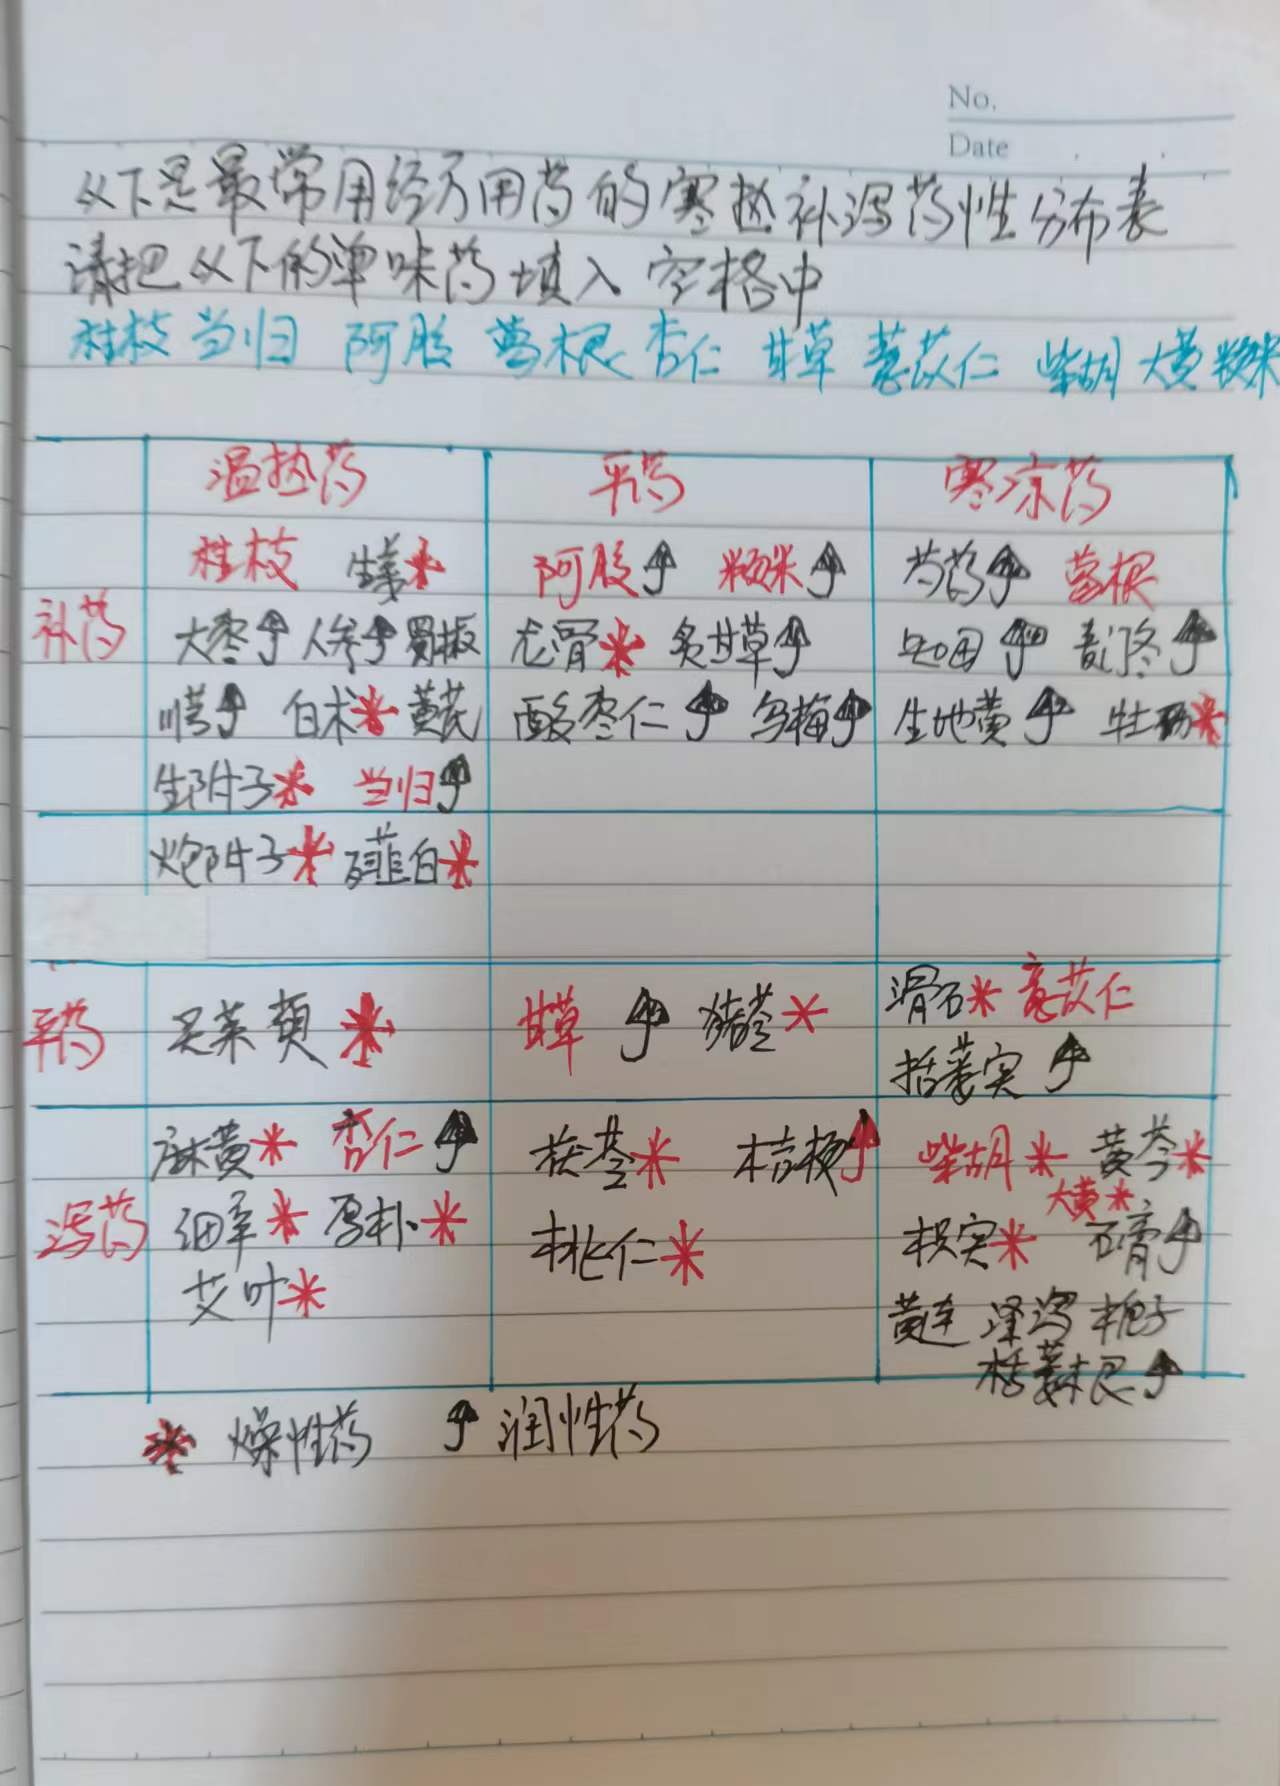 No.
Date
以下是最常用经方用药的寒热补泻药性分布表
请把以下的单味药填入空格中
桂枝 当归 阿胶 葛根 杏仁 甘草 薏苡仁 柴胡 大黄 粳米
温热药 平药 寒凉药
补药
桂枝 生姜* 阿胶 粳米 芍药 葛根
大枣 人参 蜀椒 龙骨* 炙甘草 知母 麦门冬
川芎 白术* 黄芪 酸枣仁 乌梅 生地黄 牡蛎*
生附子* 当归
炮附子* 薤白*
平药
吴茱萸* 甘草 猪苓* 滑石* 薏苡仁
括蒌实
泻药
麻黄* 杏仁 茯苓* 桔梗 柴胡* 黄芩*
大黄*
细辛* 厚朴* 桃仁* 枳实* 石膏
艾叶* 黄连 泽泻 栀子
栝蒌根
* 燥性药 润性药